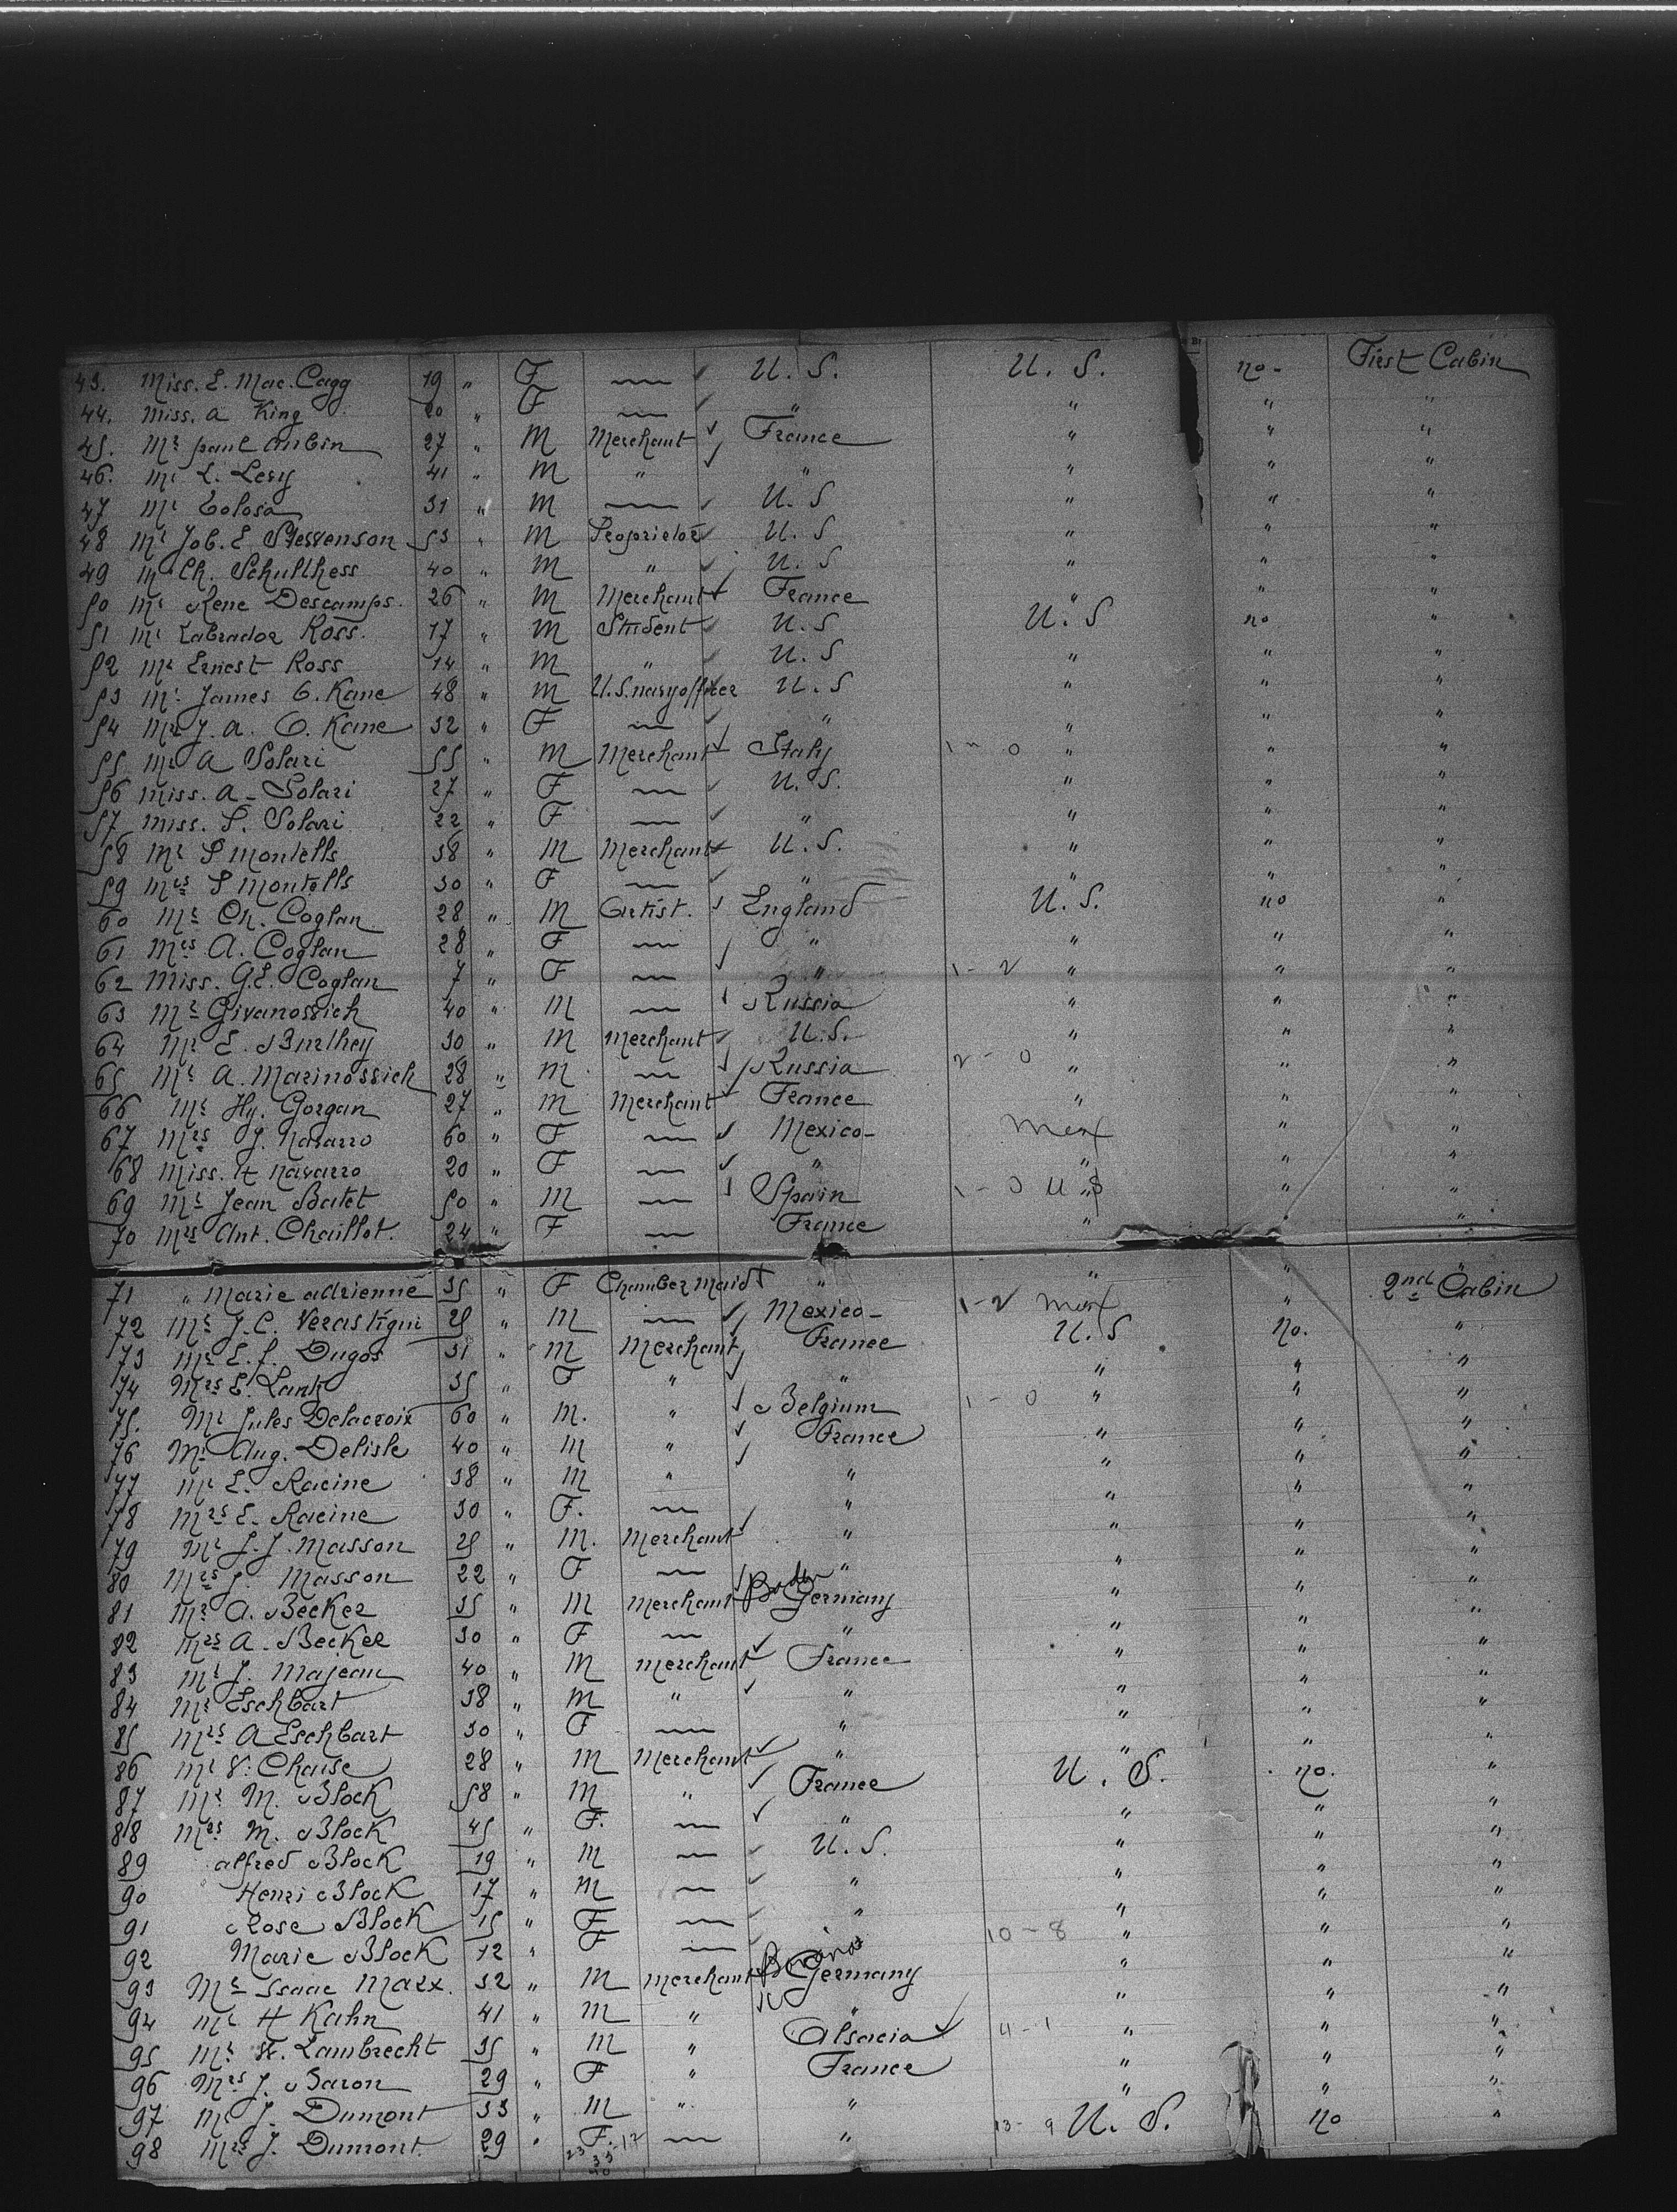 43. Miss. E. Mac. Cagg 19 " F — U. S. U. S. no - First Cabin
44. Miss. A King 20 " F — " " " "
45. Mr paul Aubin 27 " M Merchant France " " "
46. Mr L. Levy 41 " M " " " " "
47 Mr Tolosa 31 " M — U. S " " "
48 Mr Job. E Stevenson 53 " M Proprietor U. S " " "
49 Mr Ch. Schulthess 40 " M " U. S " " "
50 Mr Rene Descamps. 26 " M Merchant France " " "
51 Mr Labrador Ross. 17 " M Student U. S U. S no "
52 Mr Ernest Ross 14 " M " U. S " " "
53 Mr James O. Kane 48 " M U.S. navy officer U. S " " "
54 Mrs J. A. O. Kane 32 " F — " " " "
55 Mr A Solari 55 " M Merchant Italy 1 - 0 " " "
56 Miss. A - Solari 27 " F — U. S. " " "
57 Miss. S. Solari 22 " F — " " " "
58 Mr S Montells 38 " M Merchant U. S. " " "
59 Mrs S Montells 30 " F — " " " "
60 Mr Ch. Coglan 28 " M Artist. England U. S. no "
61 Mrs A. Coglan 28 " F — " " " "
62 Miss. G.E. Coglan 7 " F — " 1 - 2 " " "
63 Mr Givanossich 40 " M — Russia " " "
64 Mr E. Burlhey 30 " M Merchant U. S. " " "
65 Mr A. Marinossich 28 " M — Russia 2 - 0 " " "
66 Mr Hy. Gorgan 27 " M Merchant France " " "
67 Mrs J. Navarro 60 " F — Mexico - Mex " "
68 Miss. H Navarro 20 " F — " " " "
69 Mr Jean Batet 50 " M — Spain 1 - 0 U S " "
70 Mrs Ant. Chaillot. 24 " F — France " " "
71 " Marie Adrienne 35 " F Chamber Maid " " " "
2nd Cabin
72 Mr J. C. Verastigui 25 " M — Mexico - 1 - 2 Mex " "
73 Mr E. f. Dugos 31 " M Merchant France U. S no. "
74 Mrs E. Lantz 35 " F " " " " "
75. Mr Jules Delacroix 60 " M. " Belgium 1 - 0 " " "
76 Mr Aug. Delisle 40 " M " France " " "
77 Mr E. Racine 38 " M " " " " "
78 Mrs E. Racine 30 " F. — " " " "
79 Mr J. J. Masson 25 " M. Merchant " " " "
80 Mrs J. Masson 22 " F — " " " "
81 Mr A. Becker 35 " M Merchant Baden Germany " " "
82 Mrs A. Becker 30 " F — " " " "
83 Mr J. Majeau 40 " M Merchant France " " "
84 Mr Eschbart 38 " M " " " " "
85 Mrs A Eschbart 30 " F — " " " "
86 Mr V. Chaise 28 " M Merchant " " " "
87 Mr M. Block 58 " M " France U. S. no. "
88 Mrs M. Block 45 " F. — " " " "
89 Alfred Block 19 " M — U. S. " " "
90 Henri Block 17 " M — " " " "
91 Rose Block 15 " F — " " " "
92 Marie Block 12 " F — 10 - 8 " " "
93 Mr Isaac Marx. 32 " M Merchant Germany " " "
94 Mr H Kahn 41 " M " " " " "
95 Mr H. Lambrecht 35 " M " Alsacia 4 - 1 " " "
96 Mrs J. Baron 29 " F " France " " "
97 Mr J. Dumont 33 " M " " " " "
98 Mrs J. Dumont. 29 " F. — " 13 - 9 U. S. no "